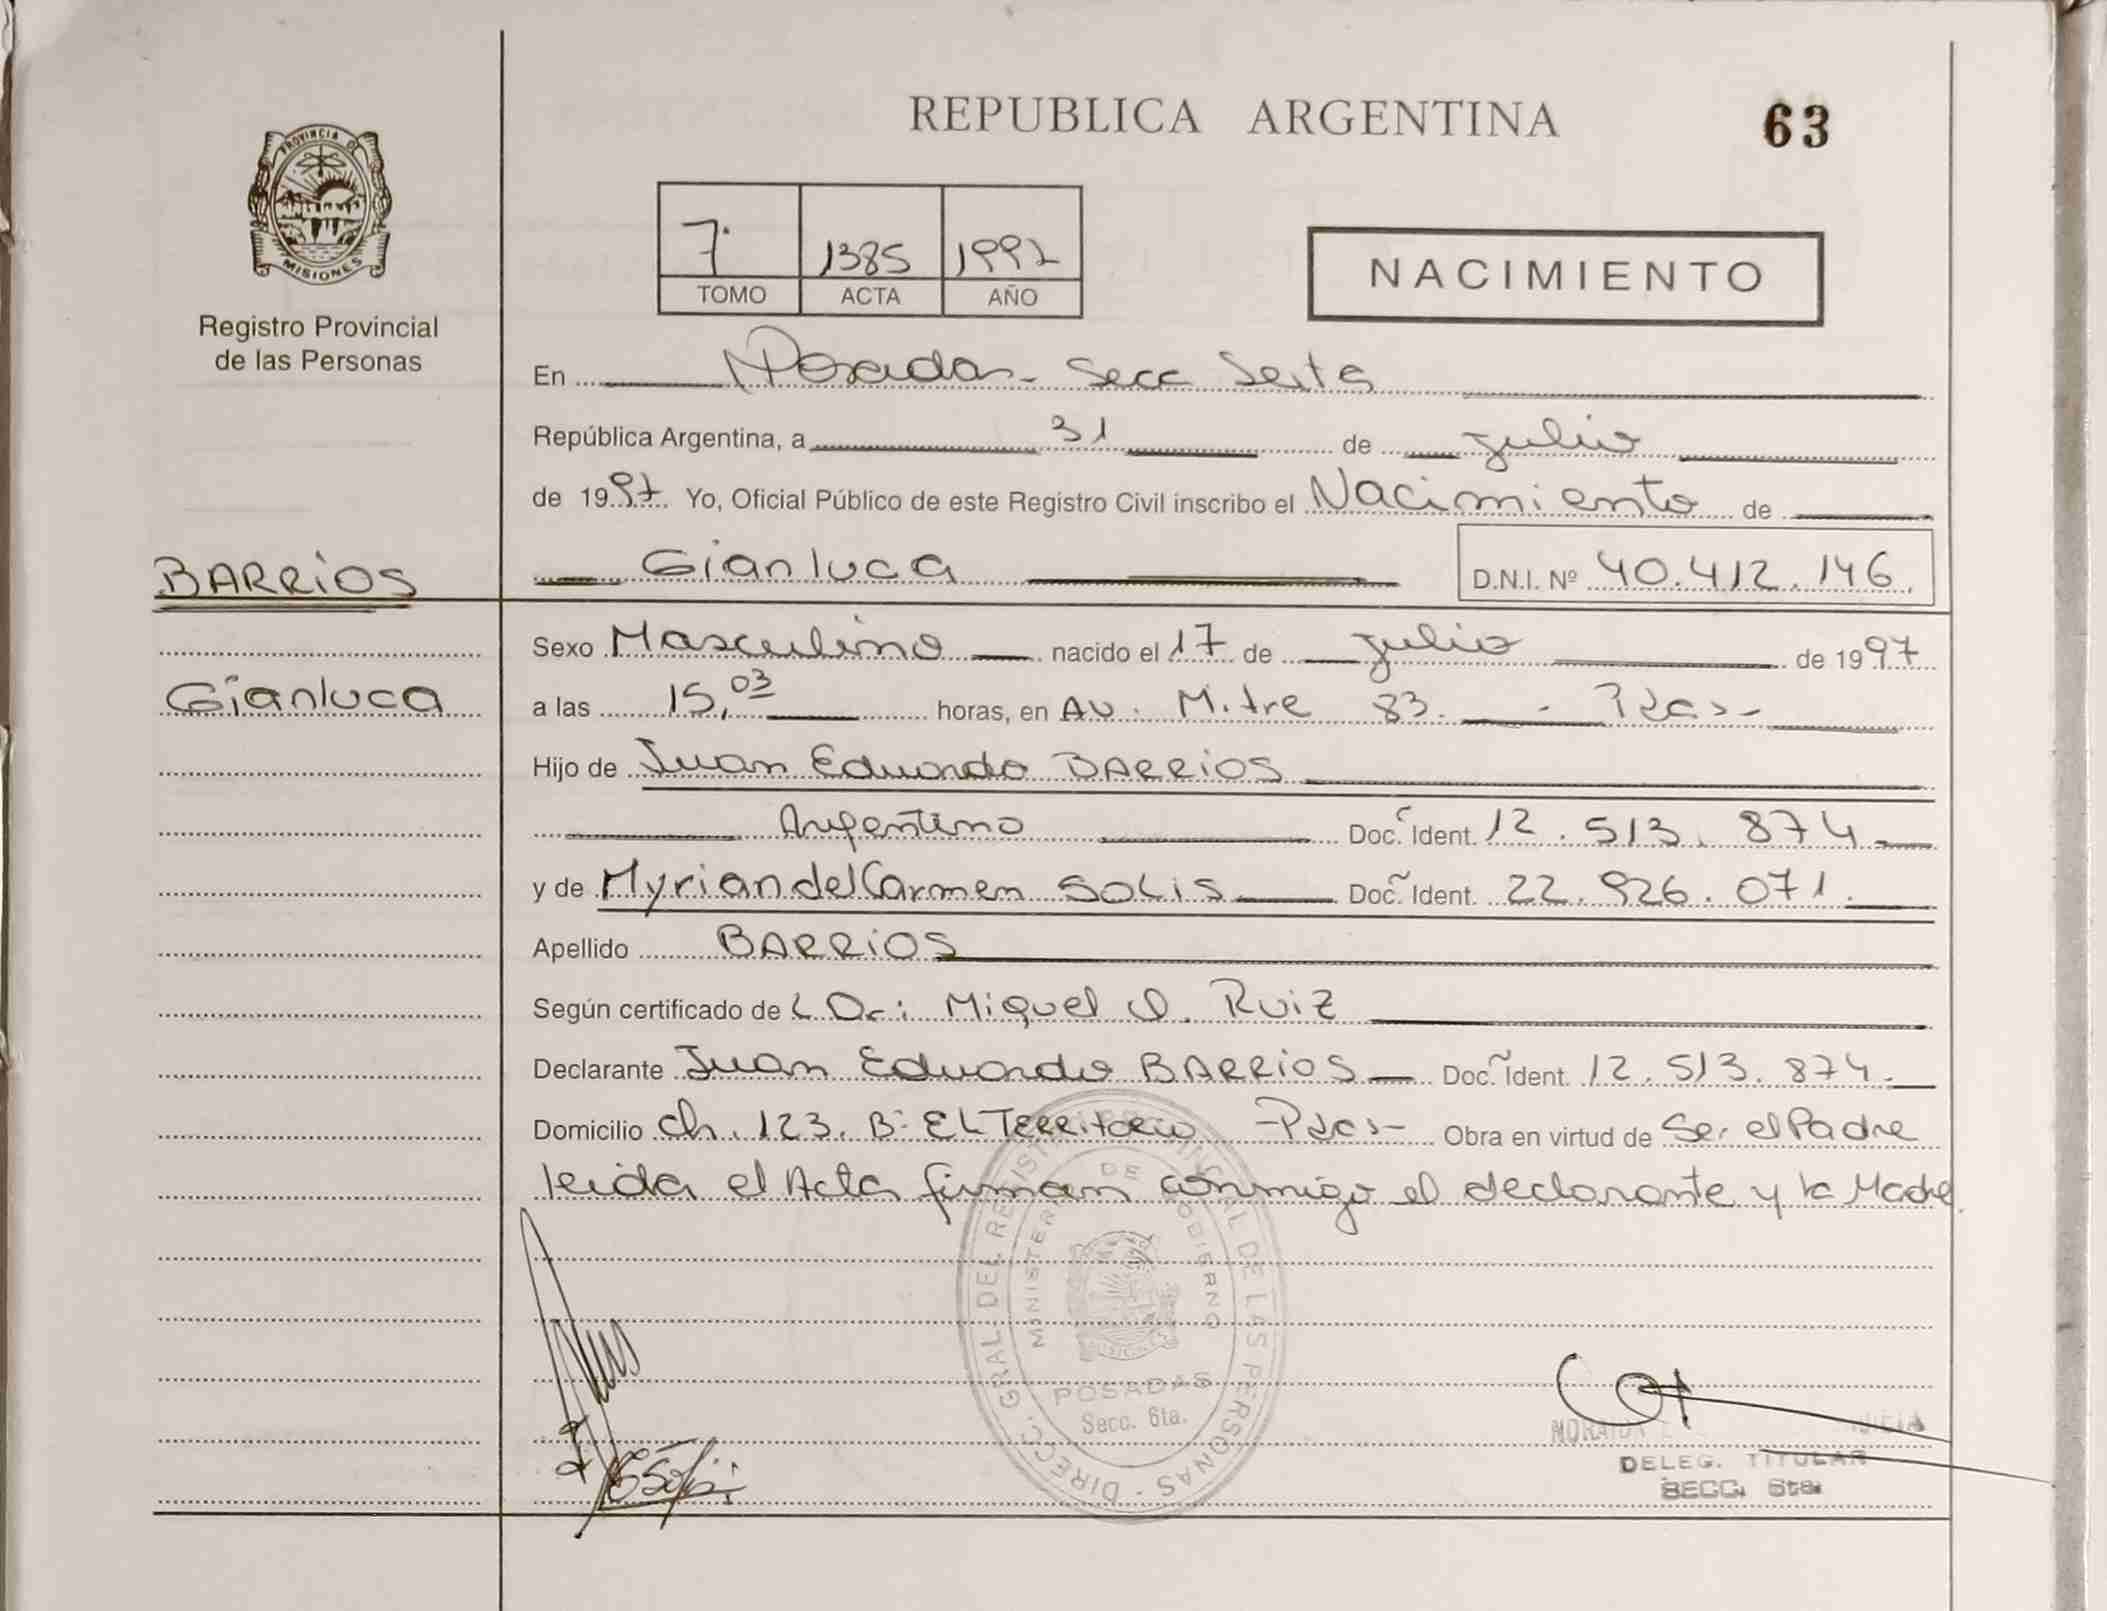 REPUBLICA ARGENTINA
63
PROVINCIA DE
MISIONES
Registro Provincial
de las Personas
7º 1385 1997
TOMO ACTA AÑO
NACIMIENTO
En Posadas - Secc Sexta
República Argentina, a 31 de julio
de 1997 Yo, Oficial Público de este Registro Civil inscribo el Nacimiento de
BARRIOS
Gianluca D.N.I. Nº 40.412.146.
Sexo Masculino nacido el 17 de julio de 1997
Gianluca
a las 15,03 horas, en Av. Mitre 83. - Pdas-
Hijo de Juan Eduardo BARRIOS
Argentino Doc. Ident. 12.513.874
y de Myrian del Carmen SOLIS Doc. Ident. 22.926.071.
Apellido BARRIOS
Según certificado de L Dr: Miguel A. Ruiz
Declarante Juan Eduardo BARRIOS Doc. Ident. 12.513.874.
Domicilio Ch. 123. Bº EL TERRITORIO -Pdas- Obra en virtud de Ser el Padre
leida el Acta firman conmigo el declarante y la Madre.
DIRECC. GRAL. DEL REGISTRO PROVINCIAL DE LAS PERSONAS
MINISTERIO DE GOBIERNO
POSADAS
Secc. 6ta.
DELEG. TITULAR
SECC. 6ta.